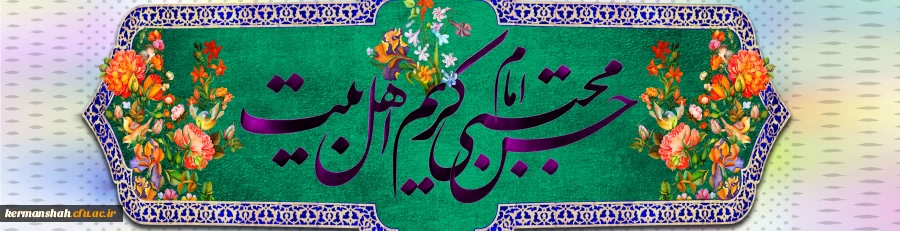 امام حسن مجتبی کریم اهل بیت
kermanshah.cfu.ac.ir